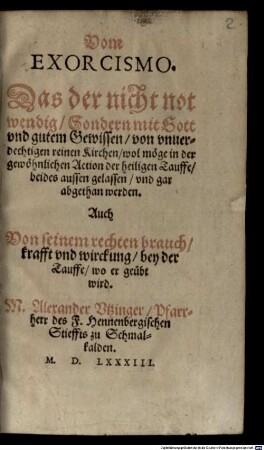 2
Vom
EXORCISMO.
Das der nicht not
wendig / Sondern mit Gott
vnd gutem Gewissen / von vnuer-
dechtigen reinen Kirchen / wol möge in der
gewöhnlichen Action der heiligen Tauffe /
beides aussen gelassen / vnd gar
abgethan werden.
Auch
Von seinem rechten brauch /
krafft vnd wirckung / bey der
Tauffe / wo er geübt
wird.
M. Alexander Vtzinger / Pfarr-
herr des F. Hennenbergischen
Stieffts zu Schmal-
kalden.
M. D. LXXXIII.